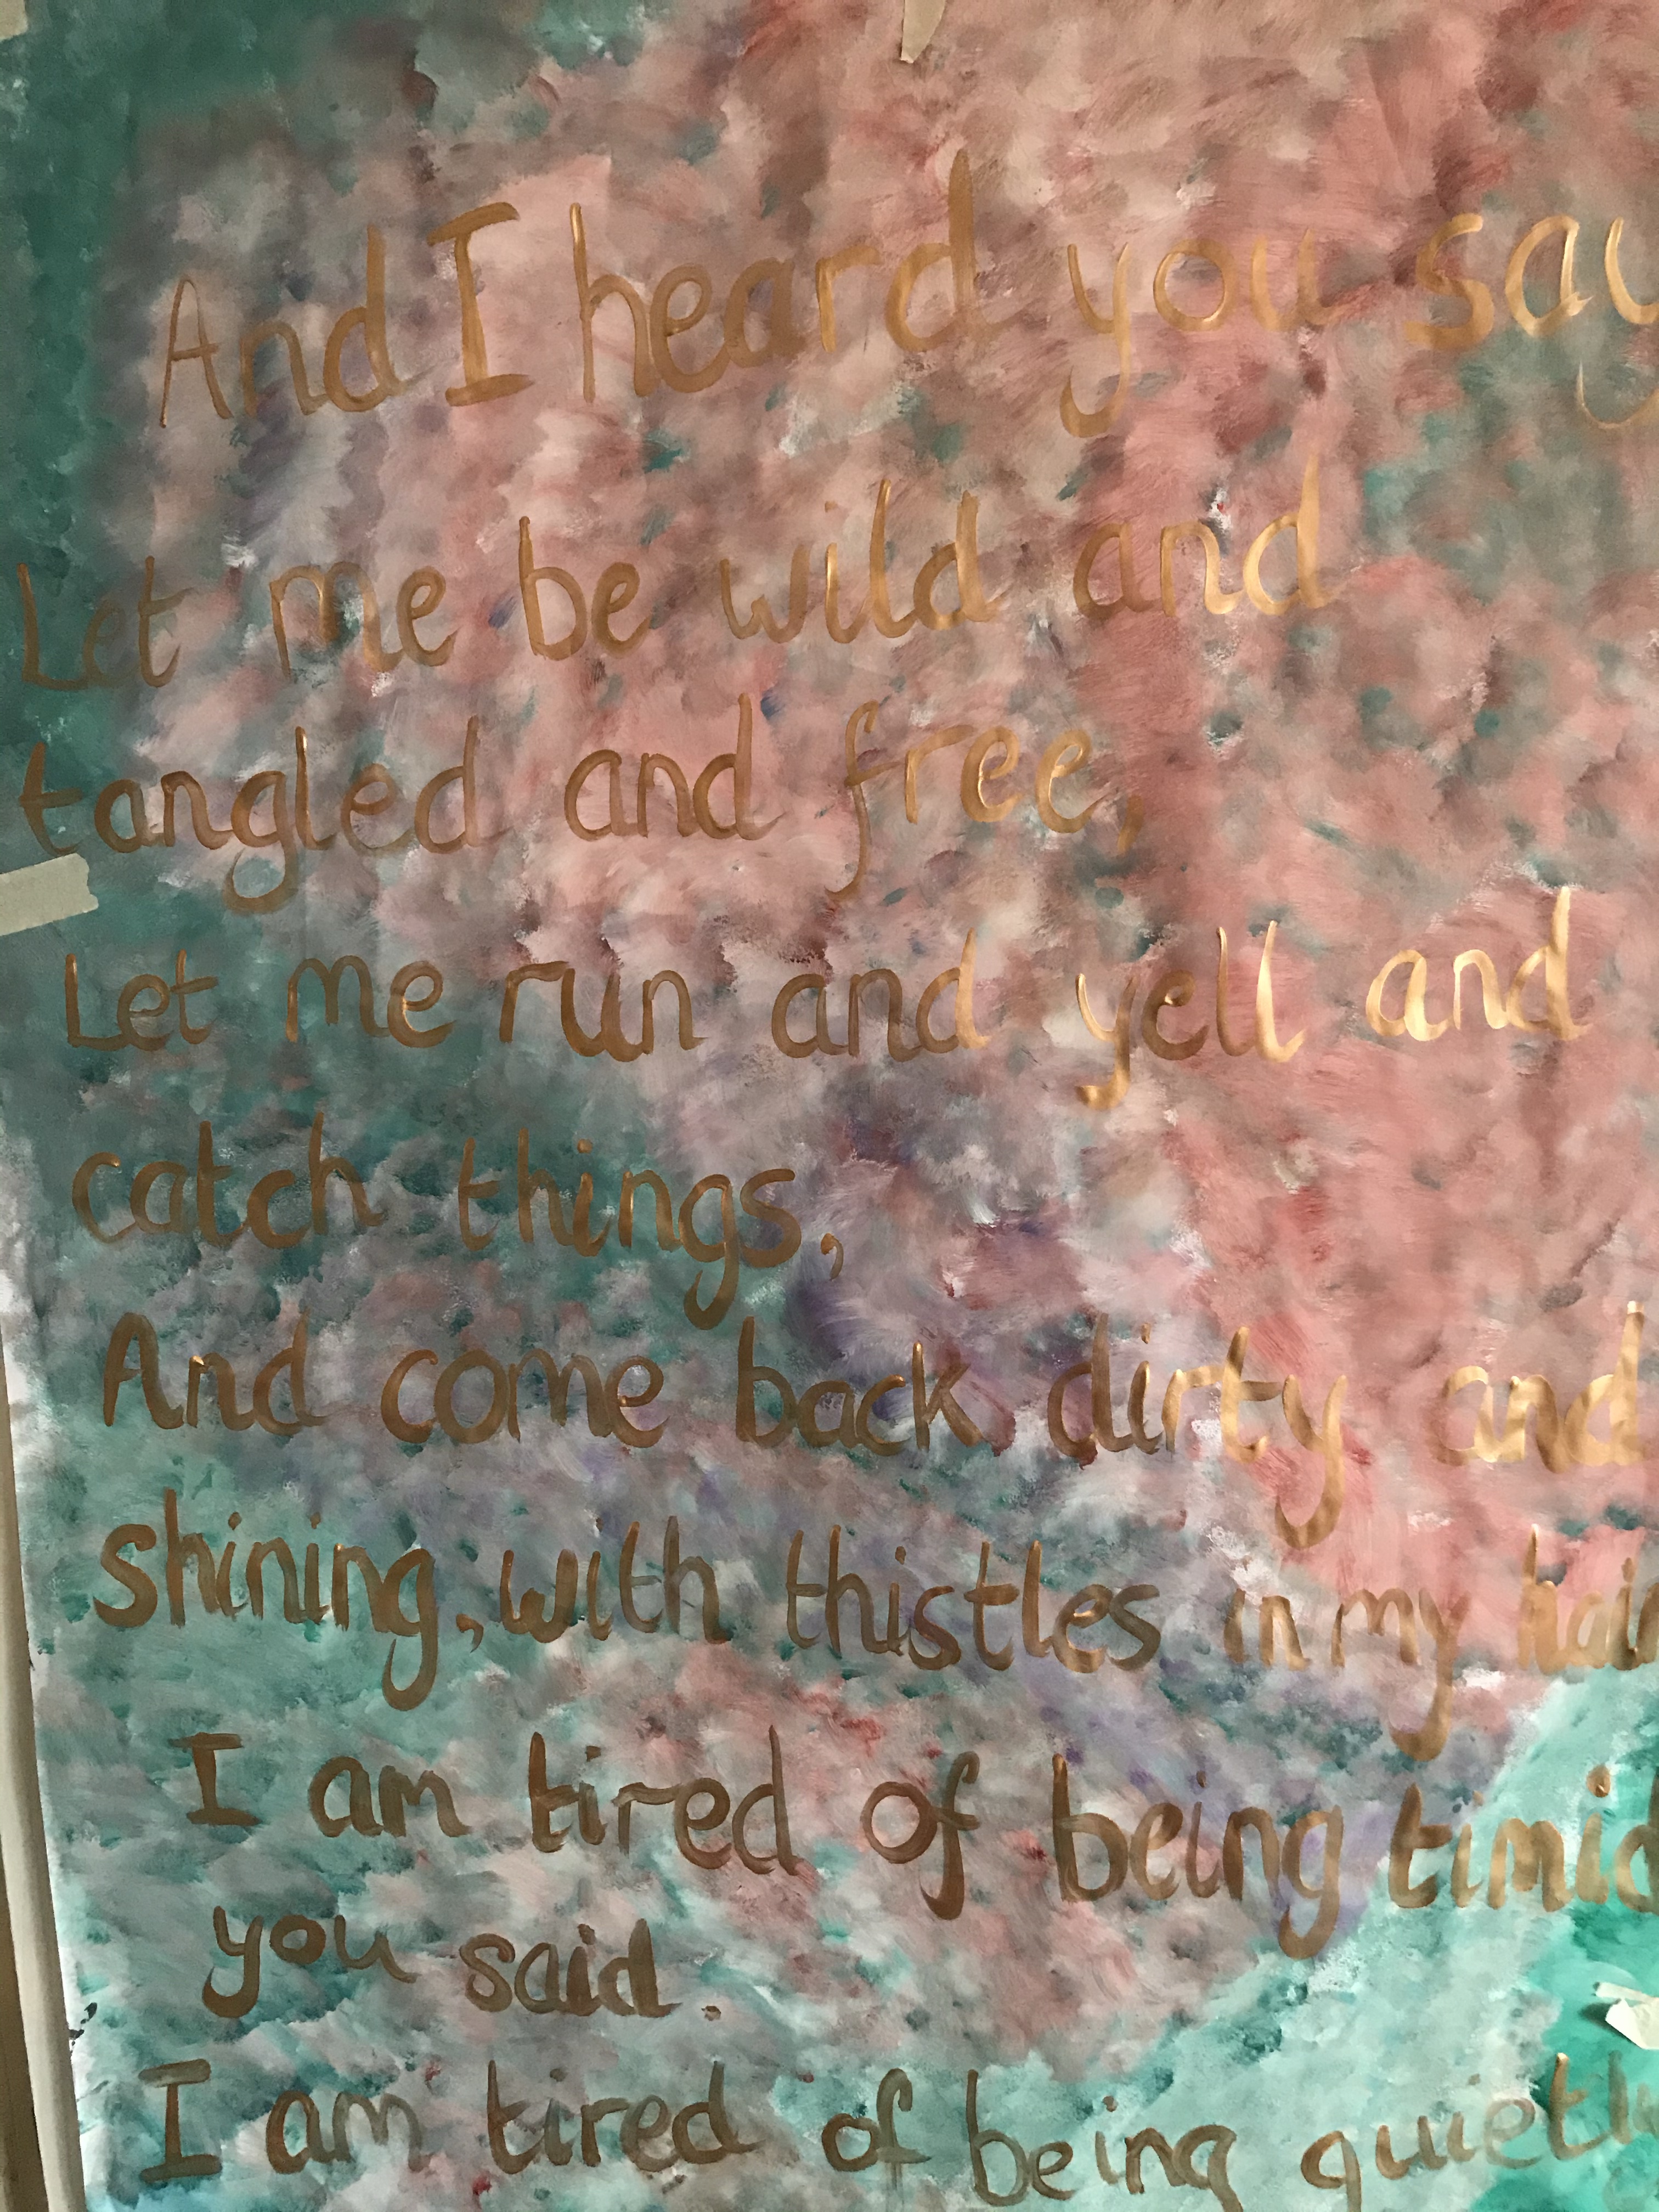 And I heard you say
Let me be wild and
tangled and free,
Let me run and yell and
catch things,
And come back dirty and
shining, with thistles in my hair
I am tired of being timid
you said.
I am tired of being quietly